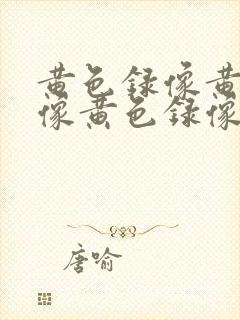 黄色録像黄
像黄色録像
唐喻